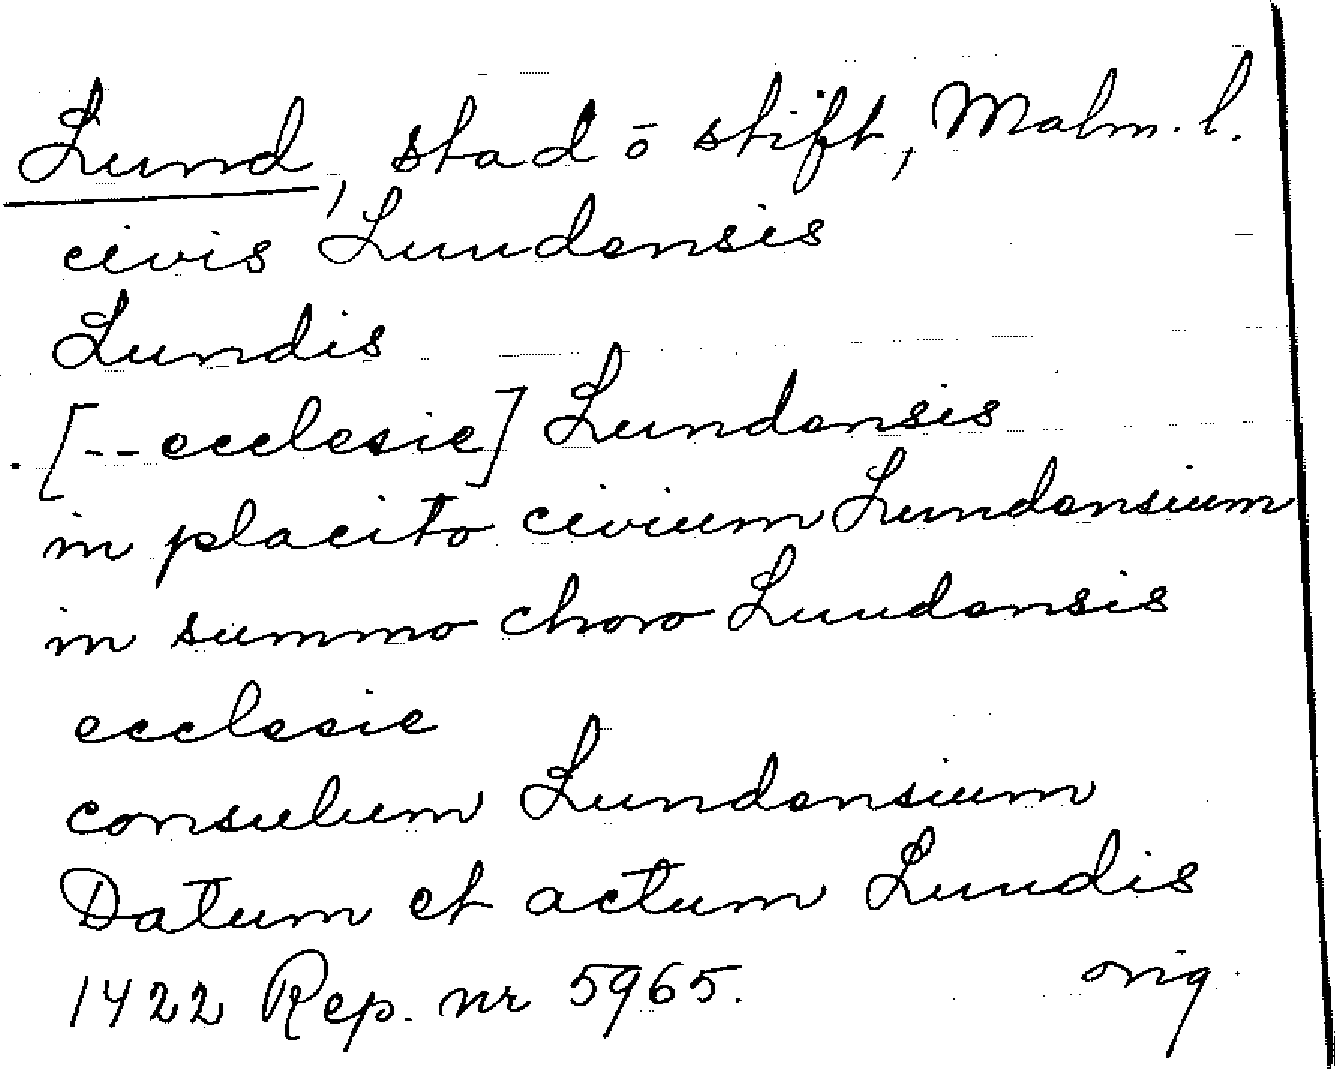 Lund, stad ō stift, Malm. l.
civis Lundensis
Lundis
[-- ecclesie] Lundensis
in placito civium Lundensium
in summo choro Lundensis
ecclesie
consulum Lundensium
Datum et actum Lundis
1422 Rep. nr 5965. orig.